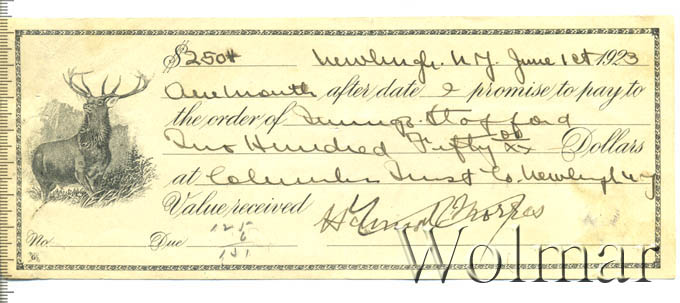 $250 Newburgh. N.Y. June 1st 1923
One month after date I promise to pay to
the order of
Two Hundred Fifty 00/xx Dollars
at Columbus Trust Co. Newburgh N.Y.
Value received
No. Due 125
6
131
Wolmar